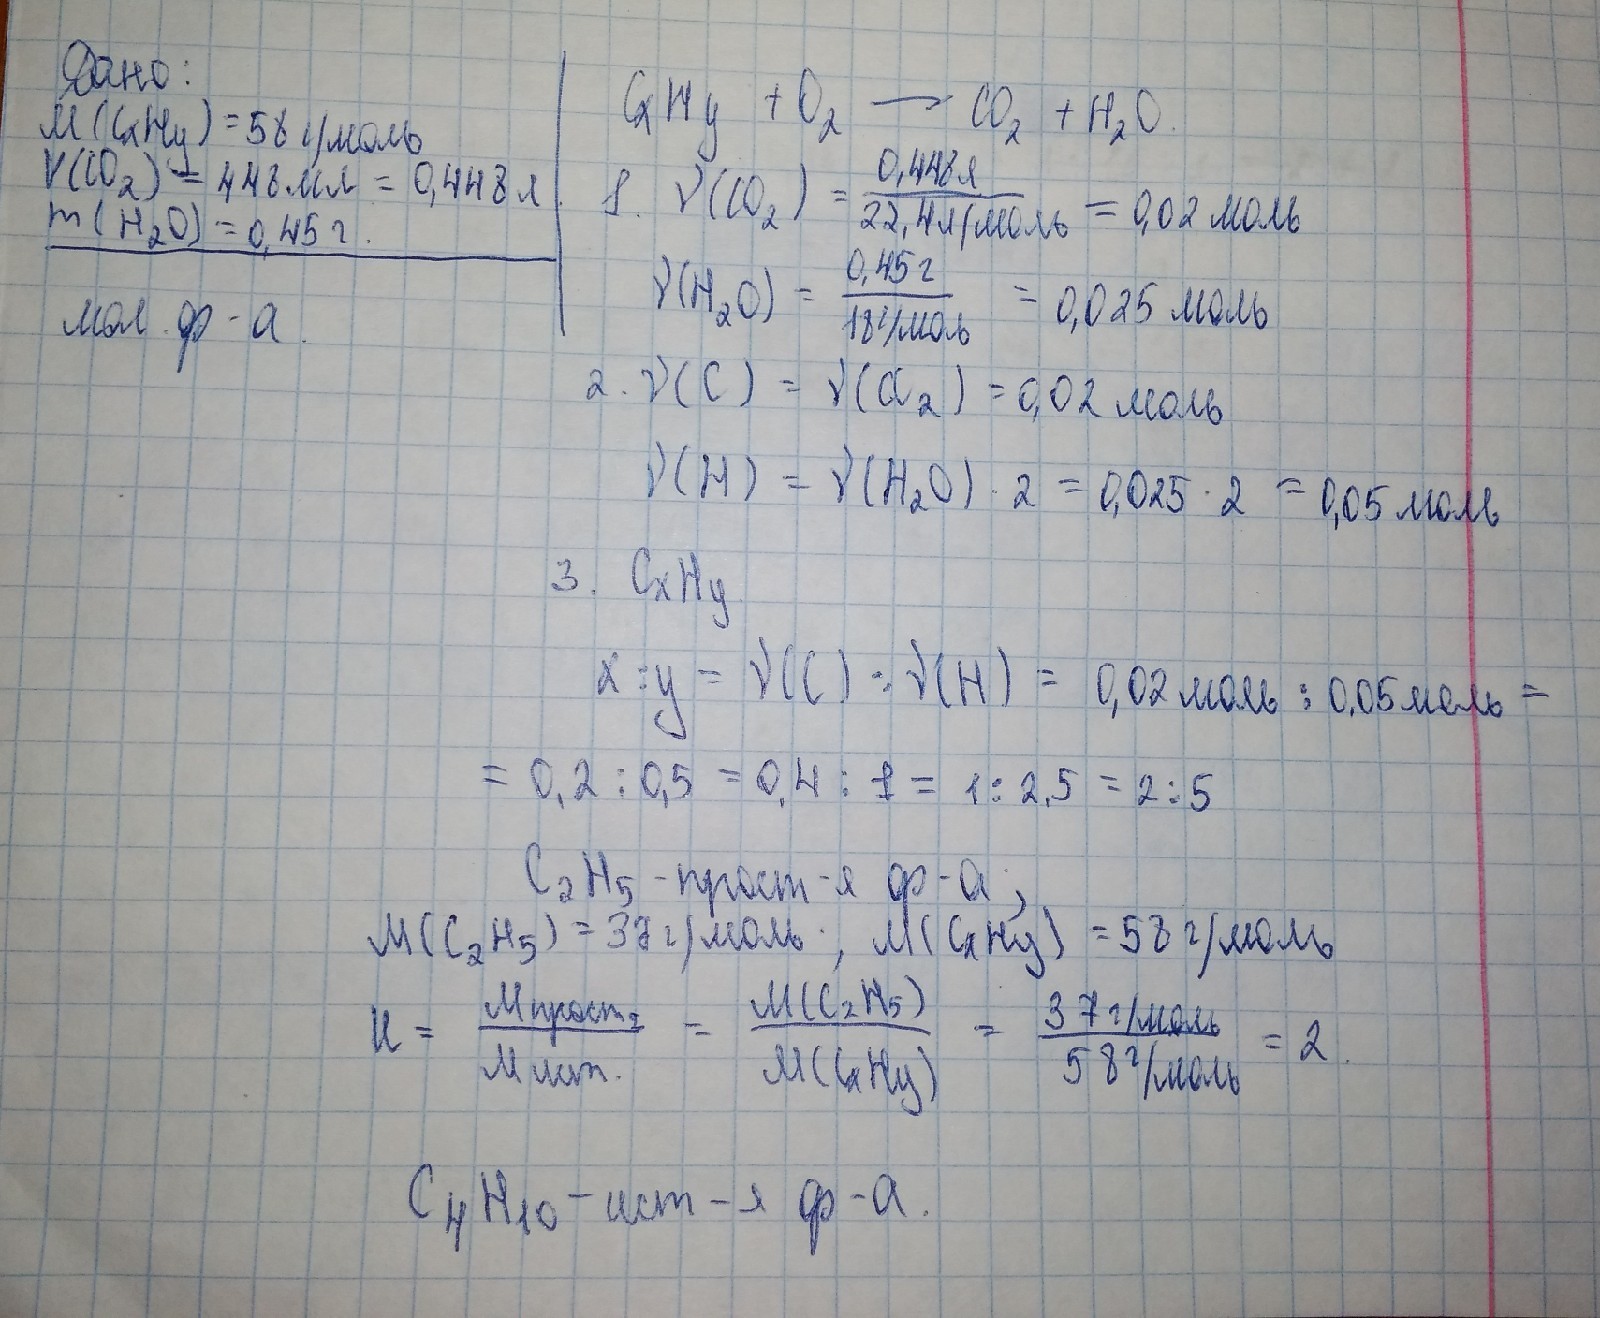 Дано:
M(CxHy) = 58 г/моль
V(CO2) = 448 мл = 0,448 л
m(H2O) = 0,45 г.
мол. ф-а.
CxHy + O2 → CO2 + H2O.
1. ν(CO2) = 0,448 л / 22,4 л/моль = 0,02 моль
ν(H2O) = 0,45 г / 18 г/моль = 0,025 моль
2. ν(C) = ν(CO2) = 0,02 моль
ν(H) = ν(H2O) · 2 = 0,025 · 2 = 0,05 моль
3. CxHy
x : y = ν(C) : ν(H) = 0,02 моль : 0,05 моль =
= 0,2 : 0,5 = 0,4 : 1 = 1 : 2,5 = 2 : 5
C2H5 - прост-я ф-а;
M(C2H5) = 37 г/моль; M(CxHy) = 58 г/моль
K = M прост. / M ист. = M(C2H5) / M(CxHy) = 37 г/моль / 58 г/моль = 2.
C4H10 - ист-я ф-а.